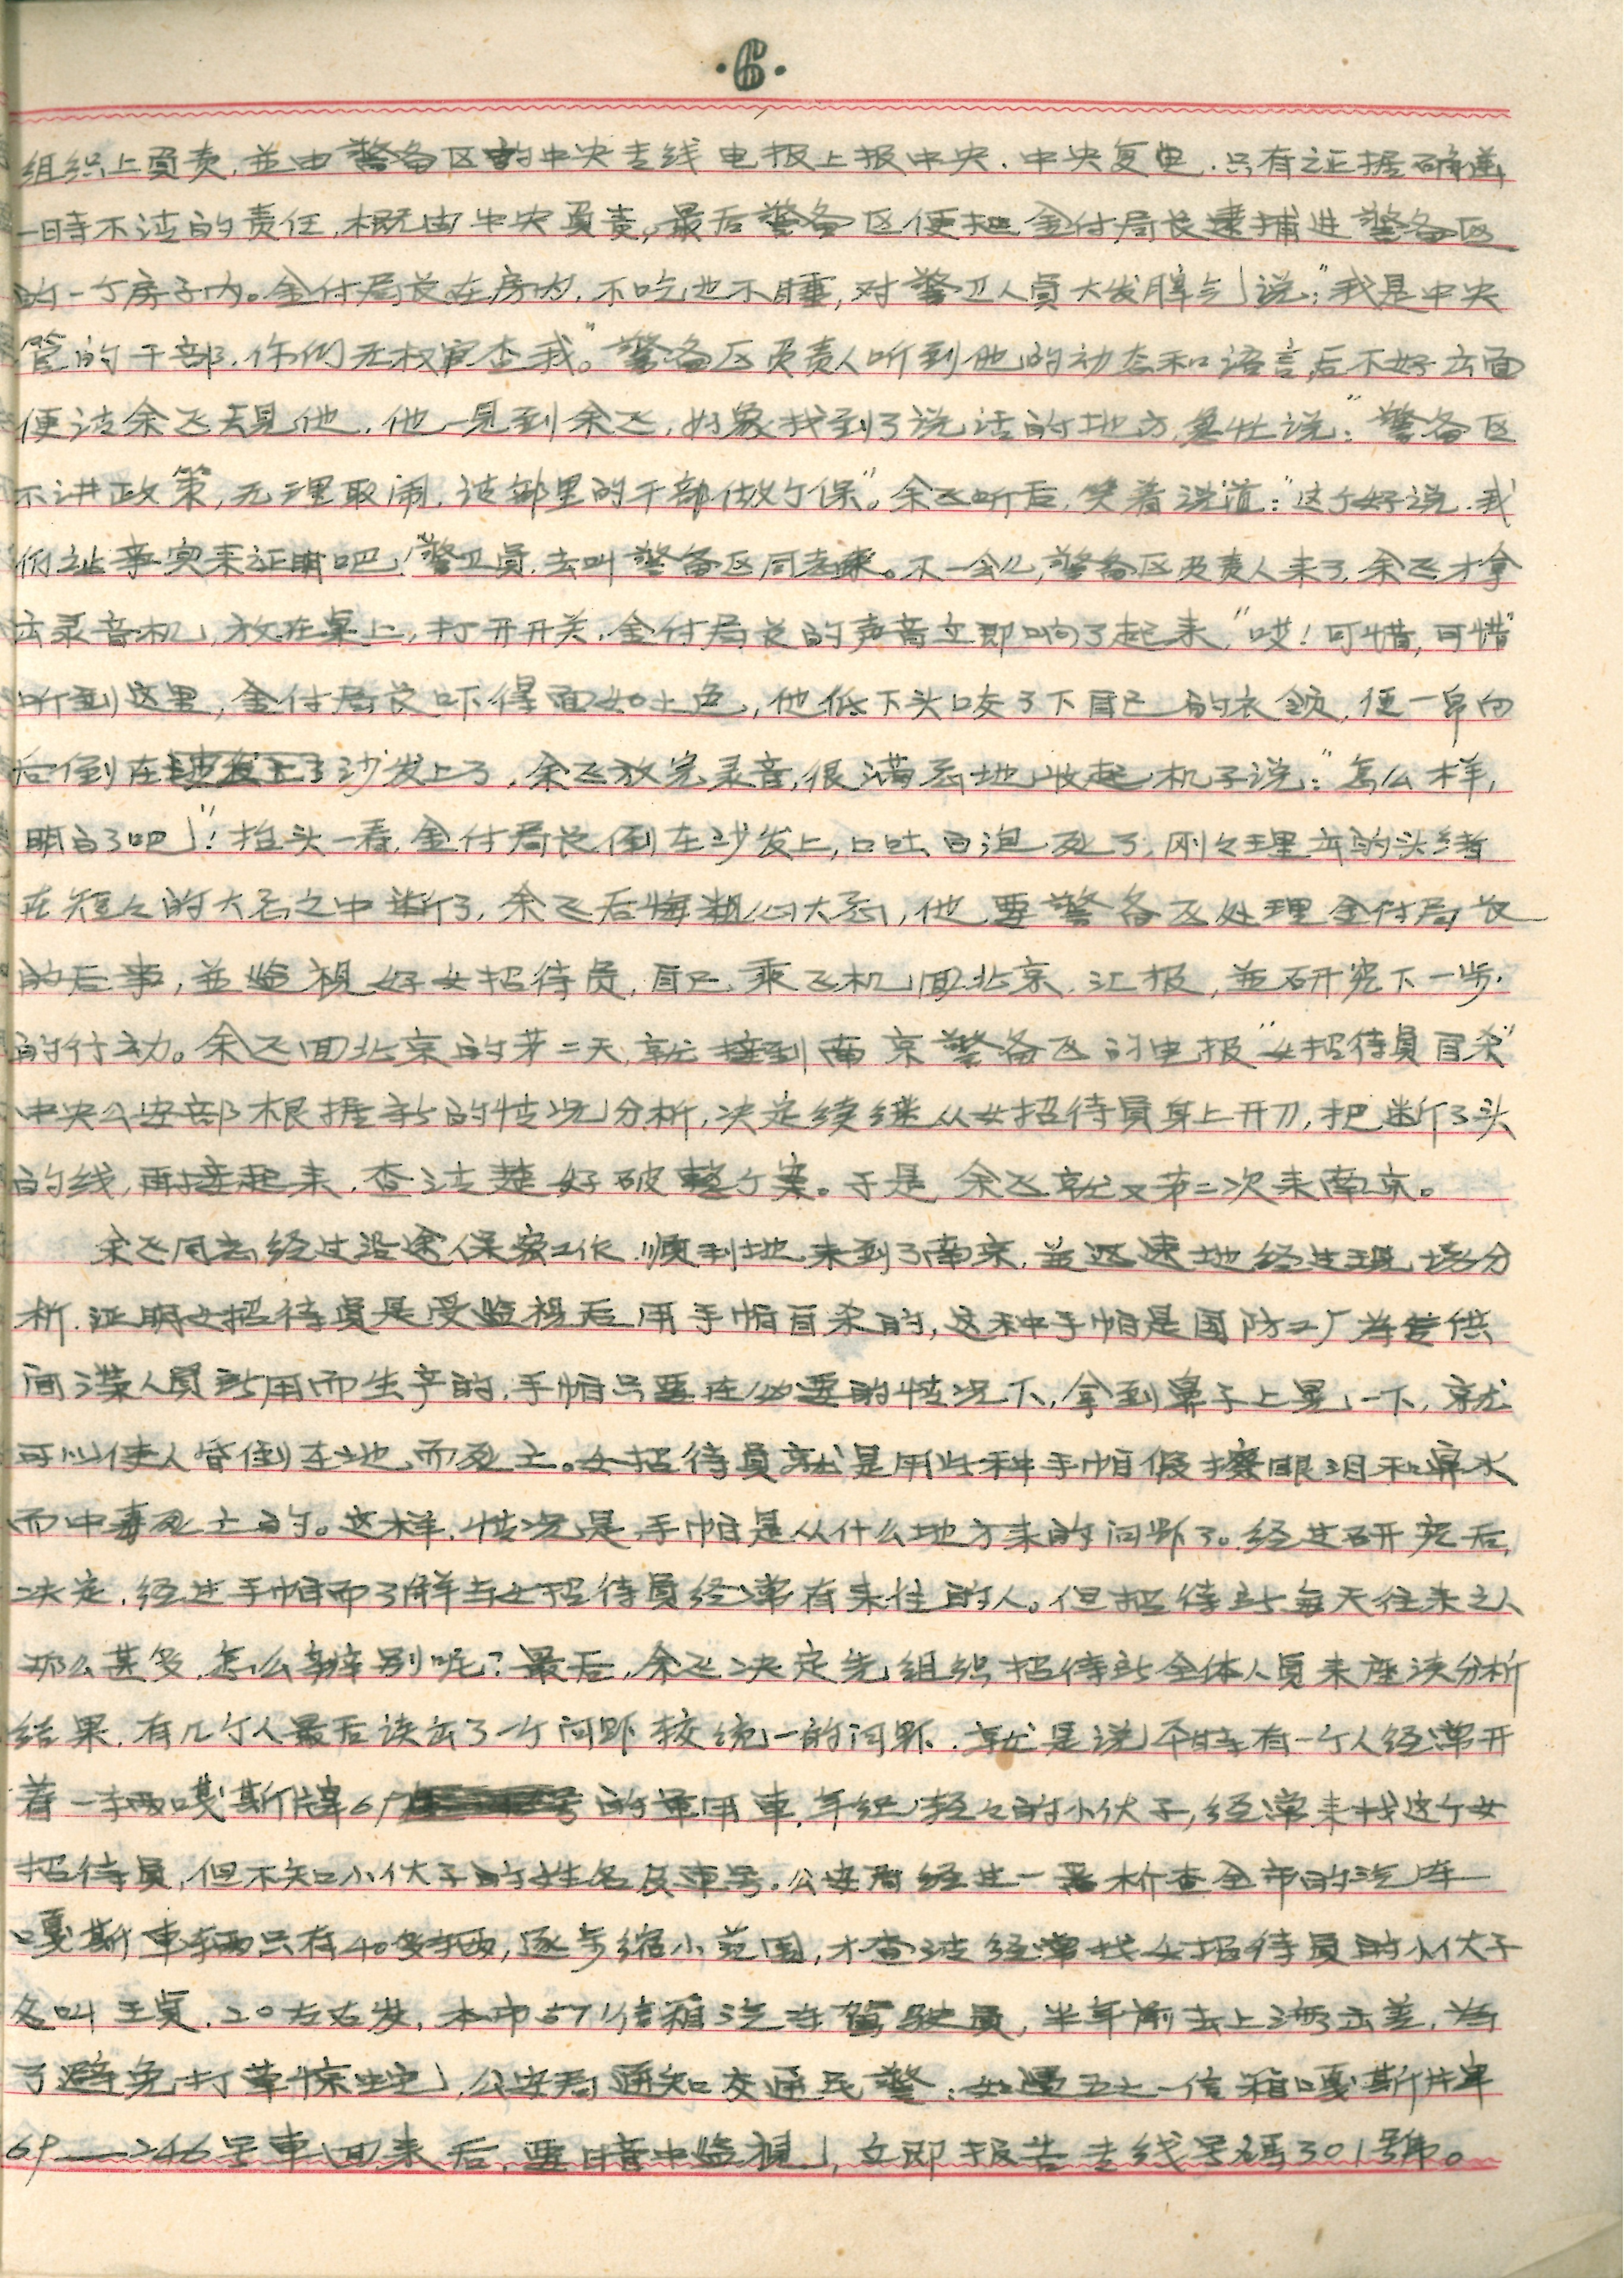 ·6·
组织上负责,並由警备区的中央专线电报上报中央.中央复电.只有证据确凿,
一時不清的责任,概由中央负责。最后警备区便把金付局长逮捕进警备区
的一个房子内。金付局长在房内,不吃也不睡,对警卫人员大发脾气说:"我是中央
管的干部.你们无权审查我。"警备区负责人听到他的动态和语言后不好出面
便请余飞去見他,他一見到余飞,好象找到了说话的地方,急忙说:"警备区
不讲政策,无理取闹,请部里的干部做个保"。余飞听后,笑着说道:"这个好说.我
们让事实来证明吧!"警卫员,去叫警备区同志来。不一会儿,警备区负责人来了,余飞才拿
出录音机,放在桌上,打开开关,金付局长的声音立即响了起来,"哎!可惜,可惜"
听到这里,金付局长吓得面如土色,他低下头咬了下自己的衣领,便一帛向
后倒在沙发上了,余飞放完录音,很满意地收起机子说:"怎么样,
明白了吧"!抬头一看,金付局长倒在沙发上,口吐白泡死了,刚々理出的头绪
在短々的大意之中断了,余飞后悔粗心大意,他要警备区处理金付局长
的后事,並监视好女招待员,自己乘飞机回北京汇报,並研究下一步
的行动。余飞回北京的第二天,就接到南京警备区的电报"女招待員自杀"
中央公安部根据新的情况分析,决定续继从女招待員身上开刀,把断了头
的线,再接起来,查清楚好破整个案。于是余飞就又第二次来南京。
余飞同志经过沿途保密工作順利地来到了南京,並迅速地经过现场分
析.证明女招待員是受监视后用手帕自杀的,这种手帕是国防工厂为专供
间谍人員所用而生产的,手帕只要在必要的情况下,拿到鼻子上晃一下,就
可以使人昏倒在地而死亡。女招待員就是用此种手帕假擦眼泪和鼻水
而中毒死亡的。这样,情况是手帕是从什么地方来的问题了。经过研究后,
决定.经过手帕而了解与女招待員经常有来往的人。但招待所每天往来之人
那么甚多,怎么辨别呢?最后,余飞决定先组织招待所全体人員来座谈分析
结果,有几个人最后谈出了一个问题较统一的问题.就是说平時有一个人经常开
着一辆嘎斯牌69号的軍用車.年纪轻々的小伙子,经常来找这个女
招待員,但不知小伙子的姓名及車号.公安局经过一番检查全市的汽车
嘎斯車辆只有40多辆,逐步缩小范围,才查清经常找女招待員的小伙子
名叫王贞,20左右岁,本市571信箱汽车驾駛員,半年前去上海出差,为
了避免打草惊蛇,公安局通知交通民警:如遇五七一信箱嘎斯牌
69—246号車回来后,要暗中监视,立即报告专线号码301號。